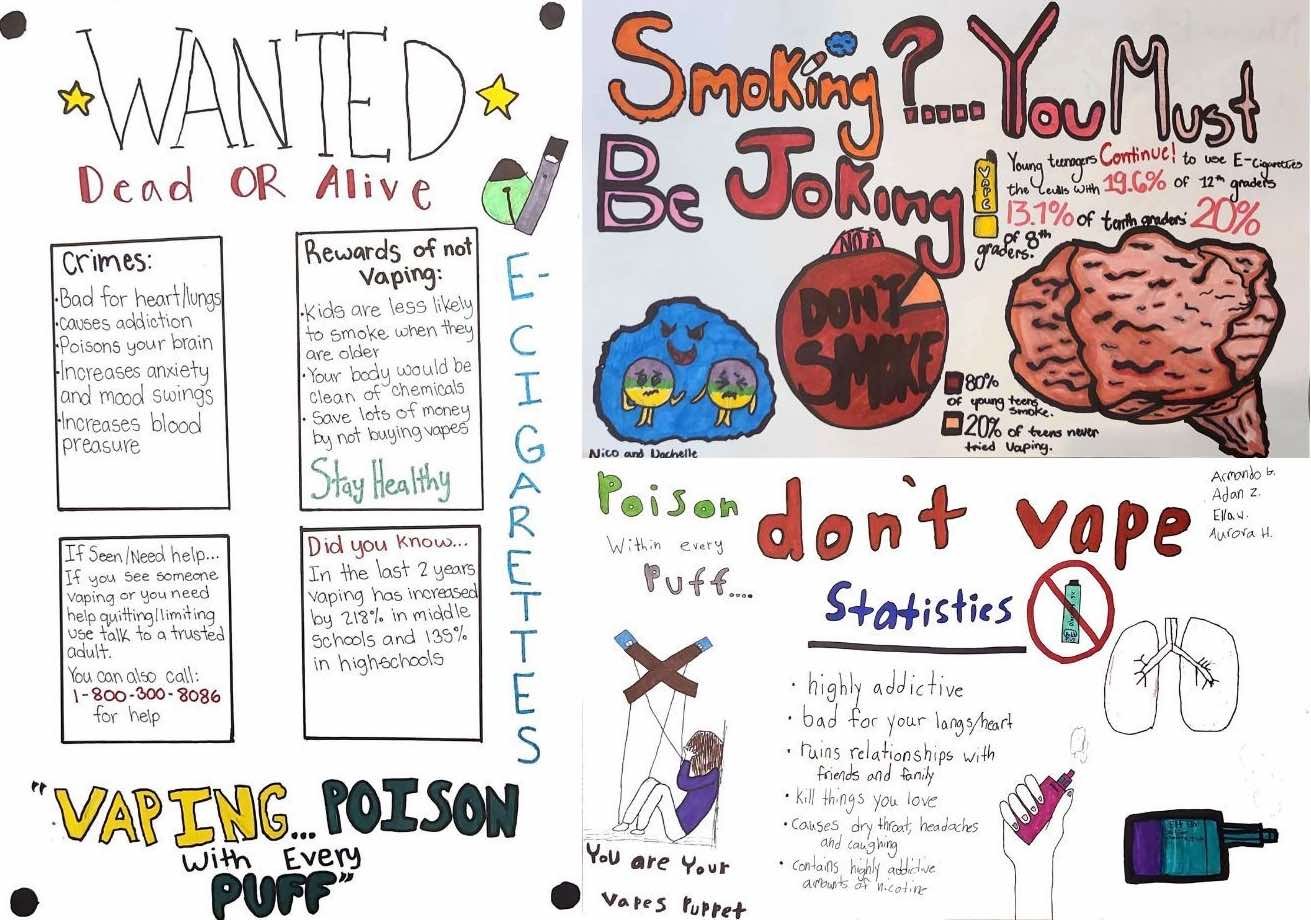 WANTED
Dead OR Alive
Crimes:
·Bad for heart/lungs
·causes addiction
·Poisons your brain
·Increases anxiety
and mood swings
·Increases blood
preasure
Rewards of not
Vaping:
·Kids are less likely
to smoke when they
are older
·Your body would be
clean of chemicals
·Save lots of money
by not buying vapes
Stay Healthy
If Seen/Need help...
If you see someone
vaping or you need
help quitting/limiting
use talk to a trusted
adult.
You can also call:
1-800-300-8086
for help
Did you know...
In the last 2 years
vaping has increased
by 218% in middle
schools and 135%
in highschools
E-CIGARETTES
"VAPING... POISON
With Every
PUFF"
Smoking?..... You Must
Be Joking
VAPE
Young teenagers Continue! to use E-cigarettes
the levels with 19.6% of 12th graders
13.1% of tenth graders 20%
of 8th
graders.
NO!
DON'T
SMOKE
80%
of young teens
smoke.
20% of teens never
tried Vaping.
Nico and
Poison
Within every
Puff....
don't vape
Armando G.
Adan Z.
Ella W.
Aurora H.
Statisties
· highly addictive
· bad for your langs/heart
· ruins relationships with
friends and family
· kill things you love
· causes dry throat, headaches
and caughing
· contains highly addictive
amounts of nicotine
You are Your
Vapes Puppet